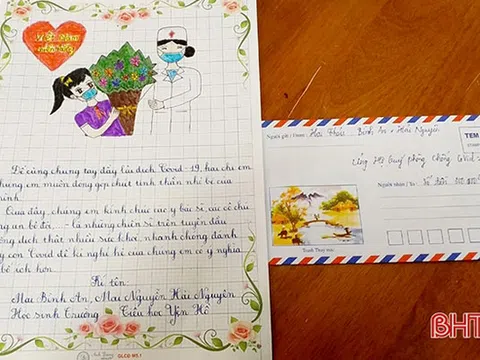 Để cùng chung tay đẩy lùi dịch Covid-19, hai chị em
chúng em muốn đóng góp chút tinh thần nhỏ bé của
mình.
Qua đây, chúng em kính chúc các y bác sĩ, các cô chú
công an bộ đội,... là những chiến sĩ trên tuyến đầu
chống dịch thật nhiều sức khỏe, nhanh chóng đánh
Covid để kì nghỉ hè của chúng em có ý nghĩa
bổ ích hơn.
Kí tên
Mai Bình An, Mai Nguyễn Hải Nguyên
Học sinh Trường Tiểu học Yên Hồ
GLCĐ M5.1
TEM
Người gửi / From: Bình An + Hải Nguyên
Ủng Hộ Quỹ phòng chống Covid
Người nhận / To:
Tranh Thủy mặc
BHT